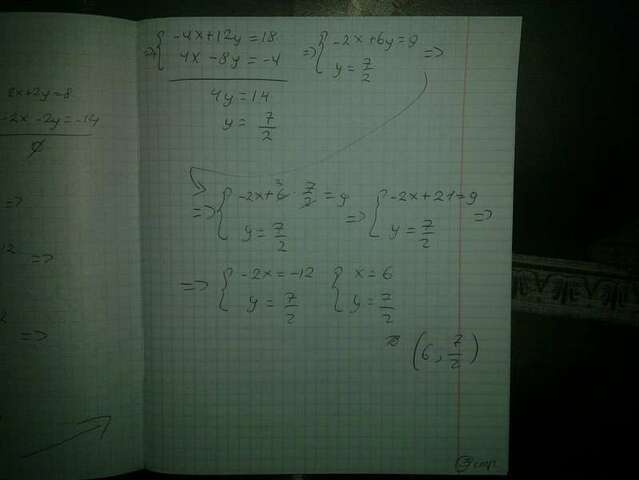 2x+2y=8
-2x-2y=-14
∅
=>
12 =>
2 =>
=> { -4x+12y=18
4x-8y=-4
4y=14
y=7/2
=> { -2x+6y=9
y=7/2 =>
=> { -2x+6³·7/2=9
y=7/2
=> { -2x+21=9
y=7/2 =>
=> { -2x=-12
y=7/2
{ x=6
y=7/2
(6, 7/2)
3 стр